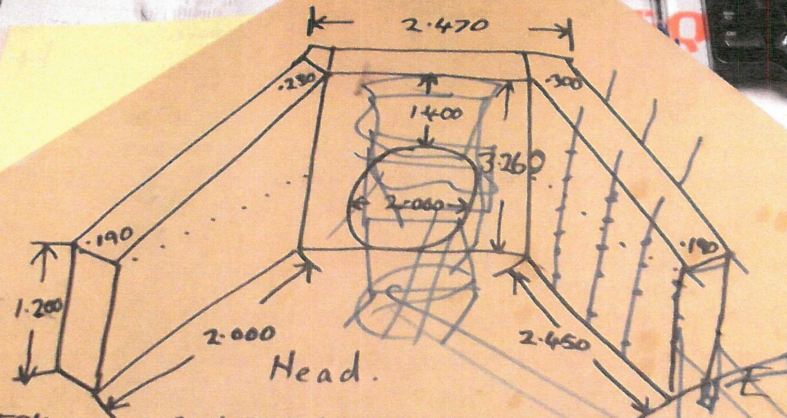 2.470
.280
.300
1.400
3.260
2.060
.190
.190
1.200
2.000
2.450
Head.